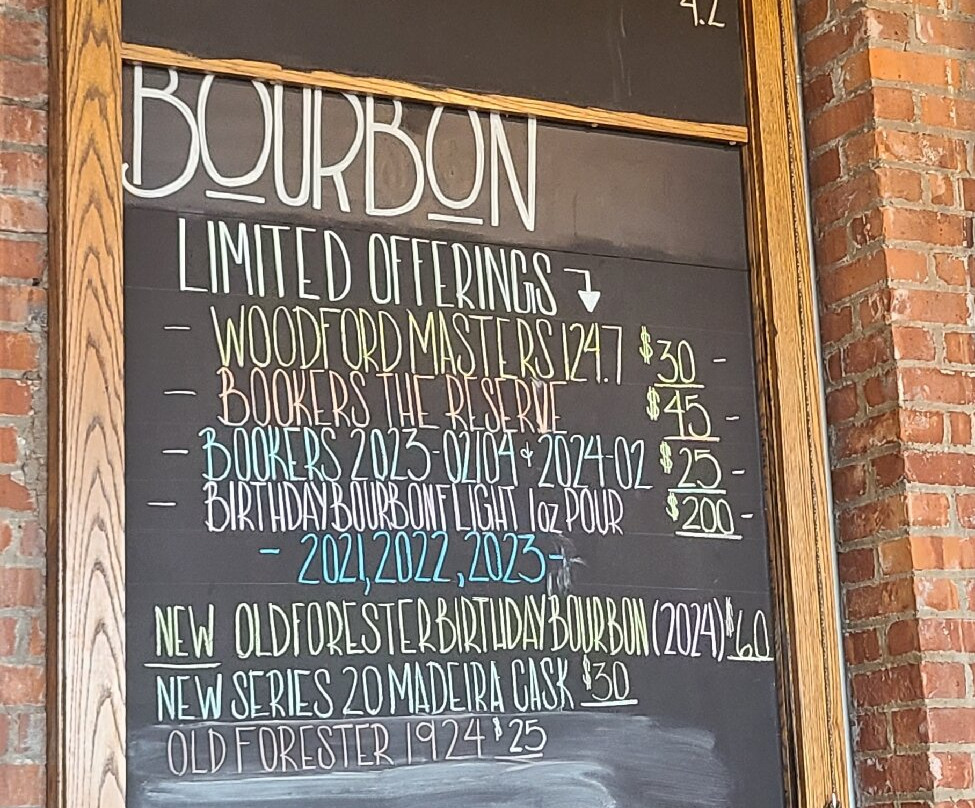 4.2
BOURBON
LIMITED OFFERINGS
- WOODFORD MASTERS 124.7 $30 -
- BOOKERS THE RESERVE $45 -
- BOOKERS 2023-02/04 & 2024-02 $25 -
- BIRTHDAY BOURBON FLIGHT 1oz POUR $200 -
- 2021, 2022, 2023 -
NEW OLD FORESTER BIRTHDAY BOURBON (2024) $60
NEW SERIES 20 MADEIRA CASK $30
OLD FORESTER 1924 $25